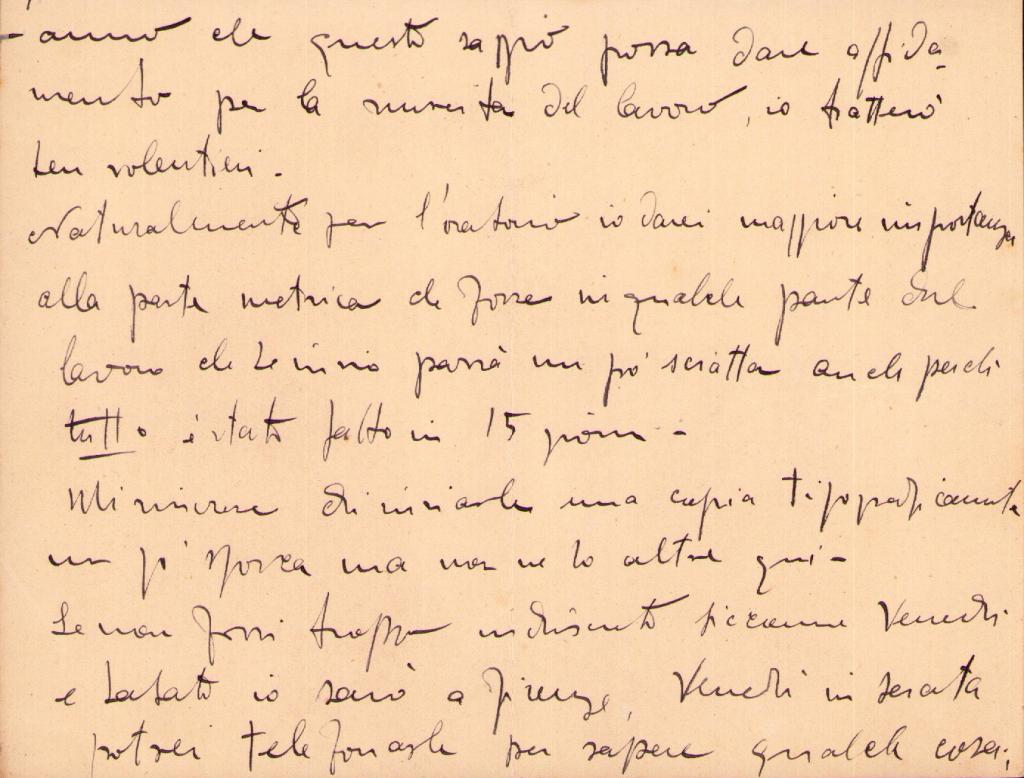 -anno che questo saggio possa dare affida-
mento per la riuscita del lavoro, io tratterò
ben volentieri.
Naturalmente per l'oratorio io darei maggiore importanza
alla parte metrica che forse in qualche parte del
lavoro parrà un po' sciatta anche perché
tutto è stato fatto in 15 giorni -
Mi rincresce di inviarle una copia tipograficamente
un po' sporca ma non ne ho altre qui -
Se non fossi troppo indiscreto siccome Venerdì
e Sabato io sarò a Firenze, Venerdì in serata
potrei telefonarle per sapere qualche cosa;